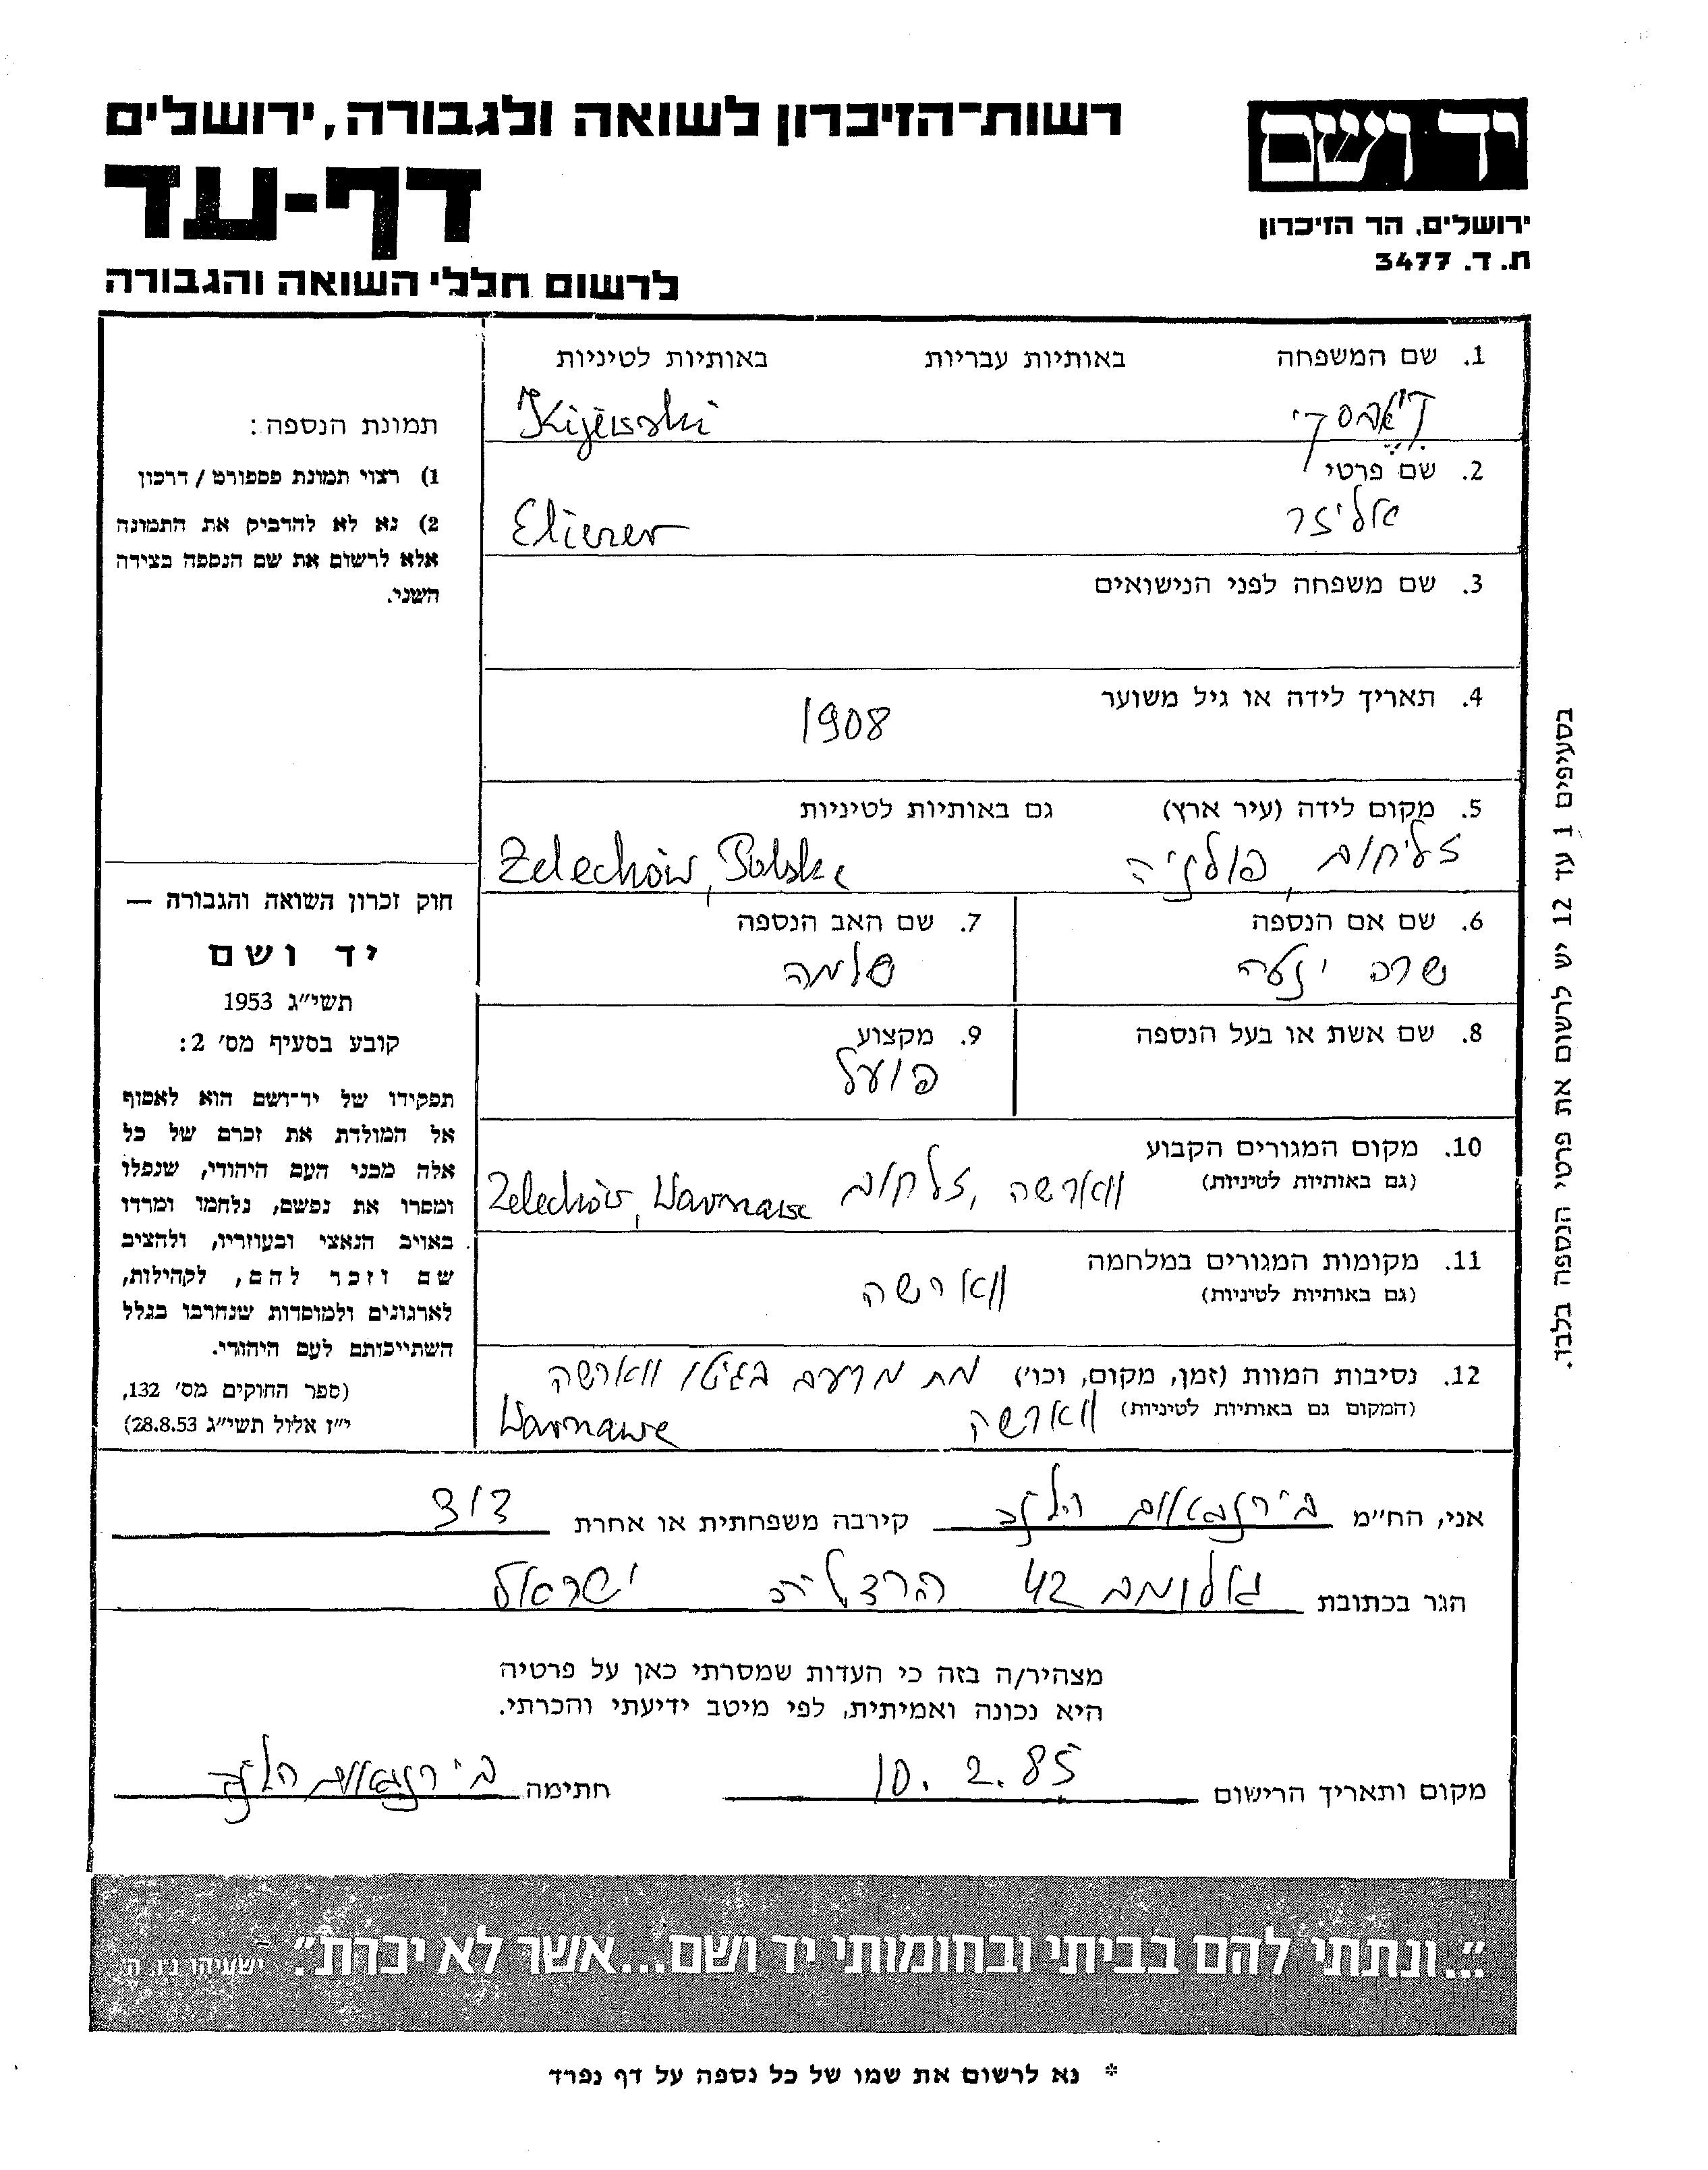 יד ושם
ירושלים, הר הזיכרון
ת. ד. 3477
רשות־הזיכרון לשואה ולגבורה, ירושלים
דף-עד
לרשום חללי השואה והגבורה
1. שם המשפחה באותיות עבריות באותיות לטיניות
Kijewski
2. שם פרטי
אליזר Eliezer
3. שם משפחה לפני הנישואים
4. תאריך לידה או גיל משוער
1908
5. מקום לידה (עיר ארץ) גם באותיות לטיניות
זליחוב, פולניה Zelechów, Polska
6. שם אם הנספה 7. שם האב הנספה
שרה שלמה
8. שם אשת או בעל הנספה 9. מקצוע
פועל
10. מקום המגורים הקבוע
(גם באותיות לטיניות)
ווארשה, זלחוב Zelechów, Warszawa
11. מקומות המגורים במלחמה
(גם באותיות לטיניות)
ווארשה
12. נסיבות המוות (זמן, מקום, וכו') מת מרעב בגיטו ווארשה
(המקום גם באותיות לטיניות) ווארשה Warszawa
תמונת הנספה:
1) רצוי תמונת פספורט / דרכון
2) נא לא להדביק את התמונה
אלא לרשום את שם הנספה בצידה
השני.
חוק זכרון השואה והגבורה —
יד ושם
תשי״ג 1953
קובע בסעיף מס׳ 2:
תפקידו של יד־ושם הוא לאסוף
אל המולדת את זכרם של כל
אלה מבני העם היהודי, שנפלו
ומסרו את נפשם, נלחמו ומרדו
באויב הנאצי ובעוזריו, ולהציב
שם וזכר להם, לקהילות,
לארגונים ולמוסדות שנחרבו בגלל
השתייכותם לעם היהודי.
(ספר החוקים מס׳ 132,
י״ז אלול תשי״ג 28.8.53)
בסעיפים 1 עד 12 יש לרשום את פרטי הנספה בלבד.
אני, הח״מ בירנבאום הלנה קירבה משפחתית או אחרת דוד
הגר בכתובת 42 הרצליה ישראל
מצהיר/ה בזה כי העדות שמסרתי כאן על פרטיה
היא נכונה ואמיתית, לפי מיטב ידיעתי והכרתי.
מקום ותאריך הרישום 10.2.85 חתימה בירנבאום הלנה
״...ונתתי להם בביתי ובחומותי יד ושם...אשר לא יכרת״. ישעיהו נ״ו, ה׳
* נא לרשום את שמו של כל נספה על דף נפרד